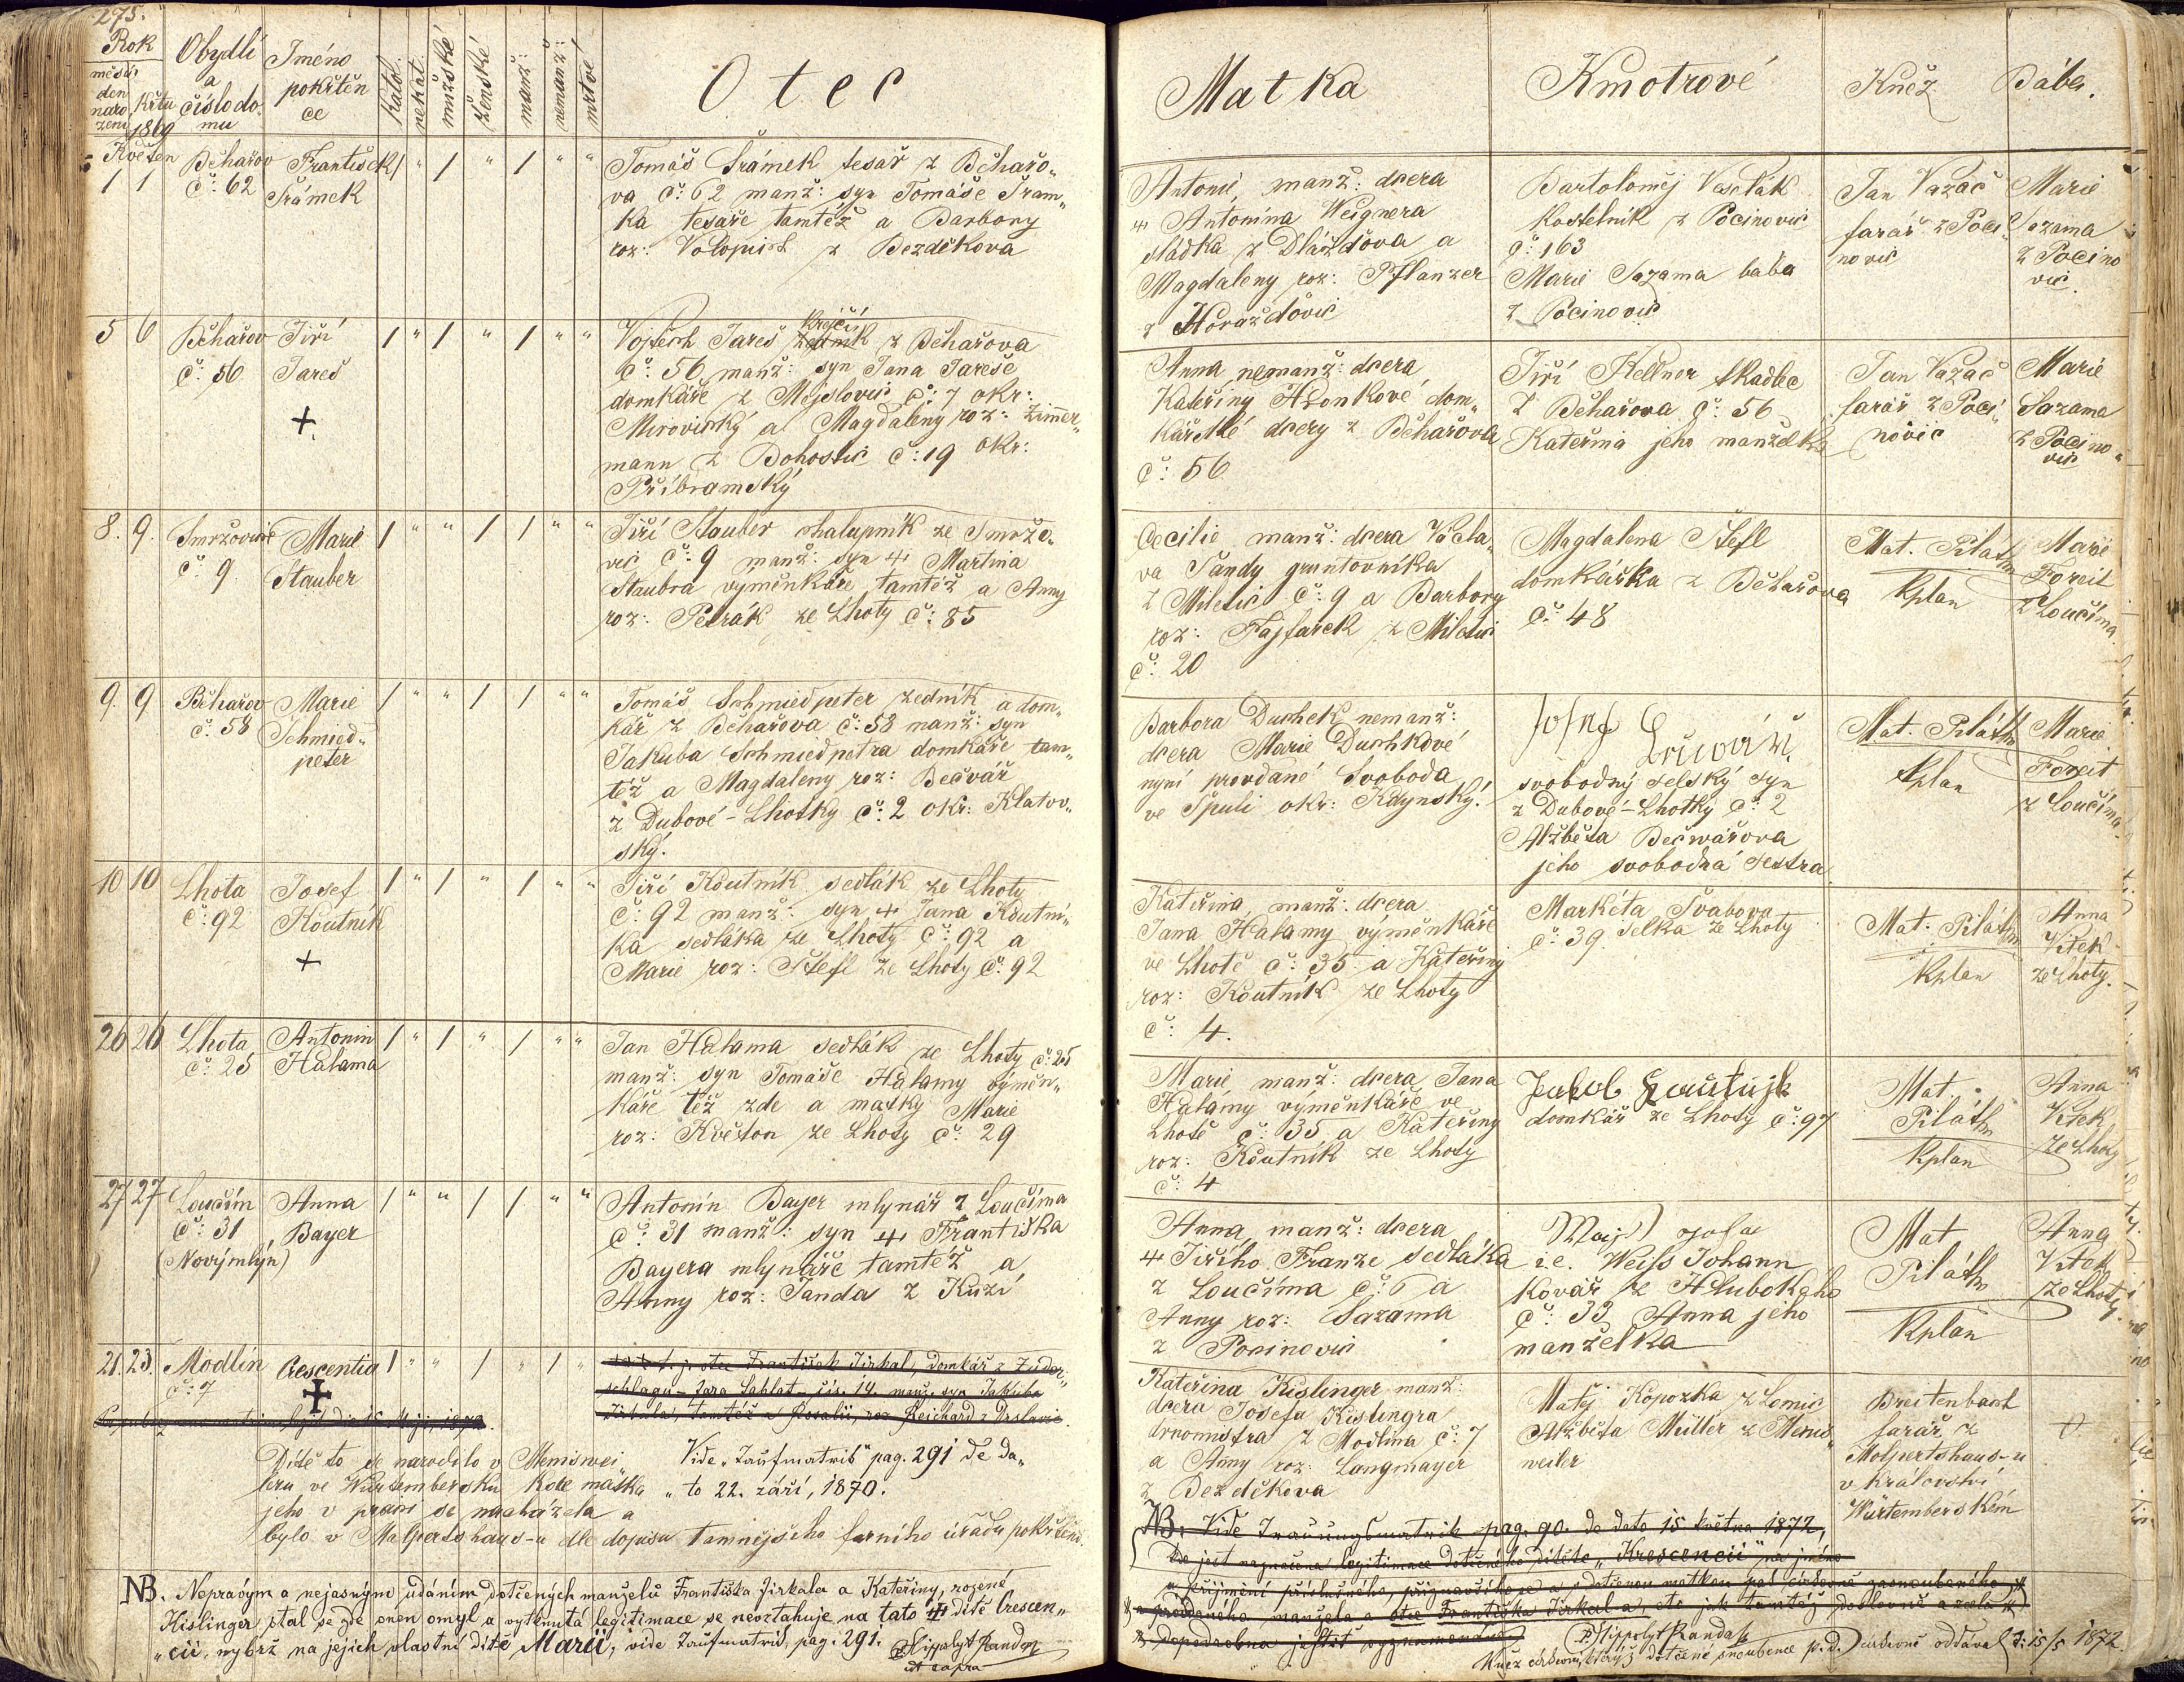 275.
Rok
měsíc
den
naro
zení
křtu
1869
Obydlí
a
číslo do
mu
Jméno
pokřtěn
ce
katol.
nekat.
mužské
ženské
manž:
nemanž:
mrtvé
Otec
Matka
Kmotrové
Kněz
Bába.
Květen
1 1
Běhařov
č: 62
František
Šrámek
Tomáš Šrámek tesař z Běhařo„
va č: 62 manž: syn Tomáše Šram„
ka tesaře tamtéž a Barbory
roz: Volopich z Bezděkova
Antonie, manž: dcera
Antonína Weignera
sládka z Dlážďova a
Magdaleny roz: Pflanzer
z Horažďovic
Bartoloměj Veselák
kostelník z Pocinovic
č: 163
Marie Sazama bába
z Pocinovic
Jan Vazač
farář z Poci„
novic
Marie
Sazama
z Pocino
vic.
5 6
Běhařov
č: 56
Jiří
Jareš
+
Vojtěch Jareš krejčí z Běhařova
č: 56 manž: syn Jana Jareše
domkáře z Mojslovic č: 7 okr:
Mirovický a Magdaleny roz: Zimmer„
mann z Bohostic č: 19 okr:
Příbramský
Anna, nemanž: dcera
Kateřiny Hronkové dom„
kářské dcery z Běhařova
č: 56
Jiří Kellner tkadlec
z Běhařova č: 56
Kateřina jeho manželka
Jan Vazač
farář z Poci„
novic
Marie
Sazama
z Pocino„
vic
8. 9.
Smržovice
č: 9
Marie
Stauber
Jiří Stauber chalupník ze Smržo„
vic č: 9 manž: syn Martina
Staubra výměnkáře tamtéž a Anny
roz: Petrák ze Lhoty č: 85
Cecilie manž: dcera Václa„
va Jandy gruntovníka
z Miletic č: 9 a Barbory
roz: Fajfarek z Miletic
č: 20
Magdalena Štefl
domkářka z Běhařova
č: 48
Mat. Piláth
Kplan
Marie
Foreit
z Loučíma.
9. 9
Běhařov
č: 58
Marie
Schmied„
peter
Tomáš Schmiedpeter zedník a dom„
kář z Běhařova č: 58 manž: syn
Jakuba Schmiedpetra domkáře tam„
též a Magdaleny roz: Bečvář
z Dubové-Lhotky č: 2 okr: Klatov„
ský.
Barbora Duchek, nemanž:
dcera Marie Duchkové
nyní provdané Svoboda
ve Spuli okr: Kdynský.
Josef
svobodný selský syn
z Dubové-Lhotky č: 2
Alžběta Bečwářova
jeho svobodná sestra
Mat. Piláth
Kplan
Marie
Foreit
z Loučíma.
10 10
Lhota
č: 92
Josef
Koutník
+
Jiří Koutník sedlák ze Lhoty
č: 92 manž: syn Jana Koutní„
ka sedláka ze Lhoty č: 92 a
Marie roz: Štefl ze Lhoty č: 92
Kateřina, manž: dcera
Jana Halamy výměnkáře
ve Lhotě č: 35 a Kateřiny
roz: Koutník ze Lhoty
č: 4.
Markéta Švabova
č: 39. selka ze Lhoty
Mat. Piláth
Kplan
Anna
Vítek
ze Lhoty.
26 26
Lhota
č: 25
Antonin
Halama
Jan Halama sedlák ze Lhoty č: 25
manž: syn Tomáše Halamy výměn„
káře též zde a matky Marie
roz: Květon ze Lhoty č: 29
Marie manž: dcera Jana
Halamy výměnkáře ve
Lhotě č: 35 a Kateřiny
roz: Koutník ze Lhoty
č: 4
Jakob
domkář ze Lhoty č: 97
Mat.
Piláth
Kplan
Anna
Vítek
ze Lhoty
27 27
Loučím
č: 31
(Novýmlýn)
Anna
Bayer
Antonín Bayer mlynář z Loučíma
č: 31 manž: syn Františka
Bayera mlynáře tamtéž a
Anny roz: Janda z Kuzí
Anna, manž: dcera
Jiřího Franze sedláka
z Loučíma č: 6 a
Anny roz: Sazama
z Pocinovic
i.e. Weiss Johann
kovář ze Hlubokýho
č: 33 Anna jeho
manželka
Mat
Piláth
Kplan
Anna
Vítek
ze Lhoty.
21. 23.
Modlín
č: 7
Crescentia
+
Kateřina Kislinger, manž:
dcera Josefa Kislingra
z Modlína č: 7
a Anny roz: Langmayer
z Bezděkova
Matěj Kopozka z Lomic
Alžběta Müller z Menis„
weiler
Breitenbach
farář z
Molpertshaus-u
v Království
Würtemberském
Dítě to se narodilo v Meniswei
leru ve Würtembersku kde matka
jeho v práci se nacházela a
bylo v Molpertshaus-u dle dopisu tamnějšího farního úřadu pokřtěno.
Vide „Taufmatrik“ pag. 291 de da„
„to 22. září, 1870.
NB. Vide Trauungsmatrik pag. 90. de dato 15 května 1872,
kde jest naznačena legitimace dotčeného dítěte „Krescencii“ na jméno
P. Hippolyt Randa
NB. Nepravým a nejasným udáním dotčených manželů Františka Jirkala a Kateřiny, rozené
Kislinger, stal se zde onen omyl a vytknutá legitimace se nevztahuje na tato dítě Crescen„
„cii, nýbrž na jejich vlastní dítě Marii, vide Taufmatrik, pag. 291. P. Hippolyt Randa
ut supra
Kněz církevní, kterýž dotčené snoubence p. d. církevně oddával d: 15/5 1872.